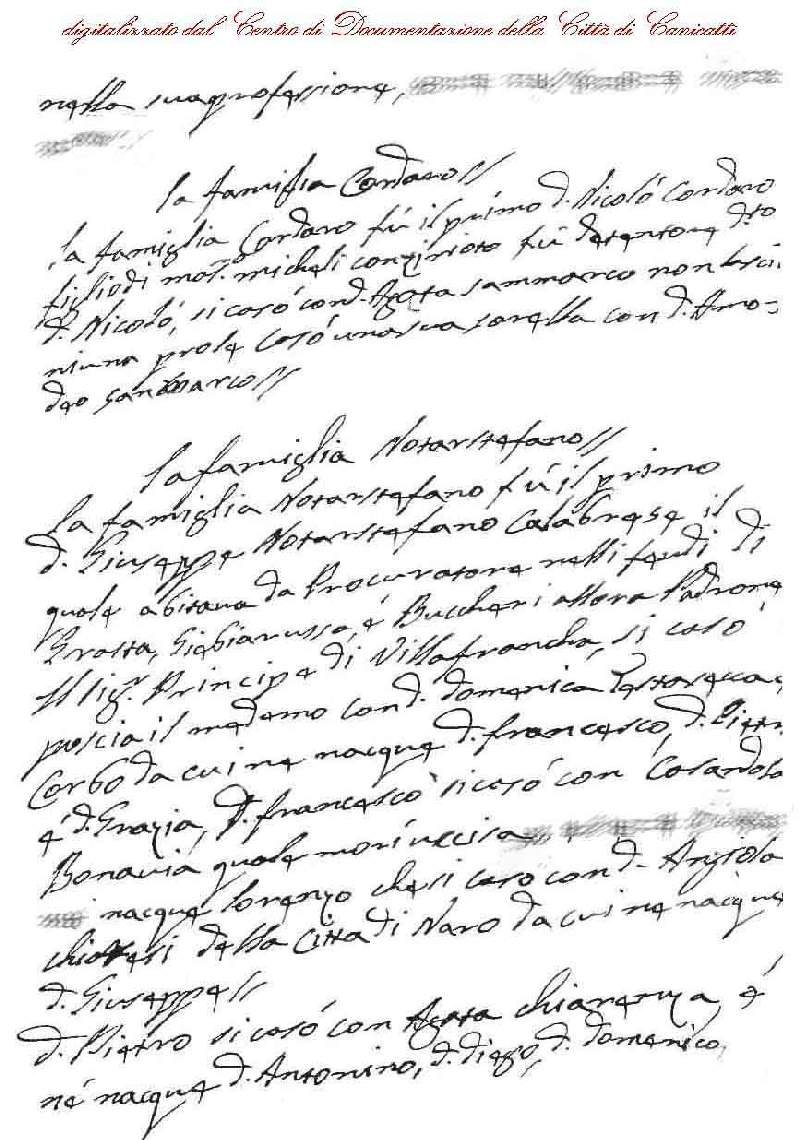 digitalizzato dal Centro di Documentazione della Città di Canicattì
nella sua professione,
la famiglia Cordaro//
la famiglia Cordaro fù il primo d. Nicolò Cordaro
figlio di mas.º micheli fù detentore dtto
d. Nicolò, si casò con d. Agata sammarco non lasciò
niuna prole Casò una sua sorella con d. Amo=
deo sanmarco//
la famiglia Notarstefano//
la famiglia Notarstefano fù il primo
d. Giuseppe Notarstefano Calabrese il
quale abitava da Procuratore nelli feudi di
Grotta, Giebiarussa, é Buccheri allora Padrone
Il sig.r Principe di Villafrancha, si casò
poscia il medemo con d. domenica Testasecca e
Corbo da cui ne nacque d. francesco, d. Pietro
é d. Grazia, d. francesco si casò con Casandola
Bonavia quale morì uccisa
nacque lorenzo che si caso con d. Angiola
della Città di Naro da cui ne nacque
d. Giuseppe//
d. Pietro si casò con Agata chiarenza, é
né nacque d. Antonino, d. diego, d. domenico,